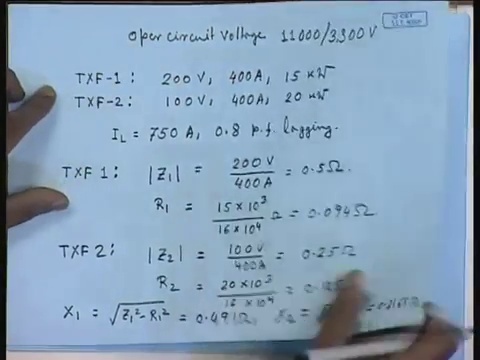 Open circuit voltage 11000/3300 V
TXF-1: 200 V, 400A, 15 KW
TXF-2: 100 V, 400A, 20 KW
I_L = 750 A, 0.8 p.f. lagging.
TXF 1: |Z₁| = 200 V / 400 A = 0.5 Ω.
R₁ = 15 × 10³ / 16 × 10⁴ Ω = 0.094 Ω
TXF 2: |Z₂| = 100 V / 400 A = 0.25 Ω
R₂ = 20 × 10³ / 16 × 10⁴ =
X₁ = √Z₁² - R₁² = 0.491 Ω, X₂ =